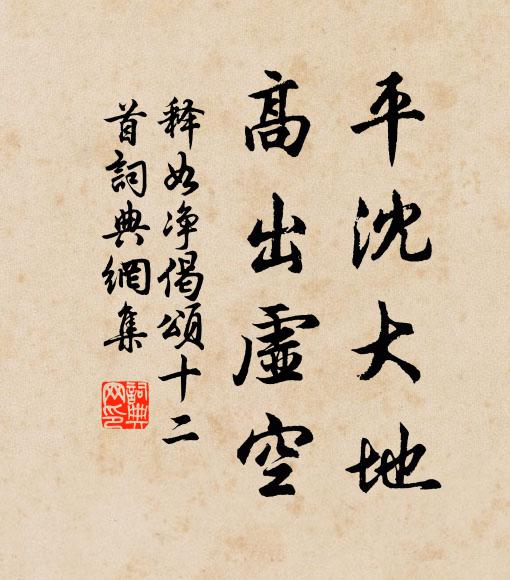 平沈大地
高出虛空
釋如净偈頌十二
首詞典網集
詞典
网印